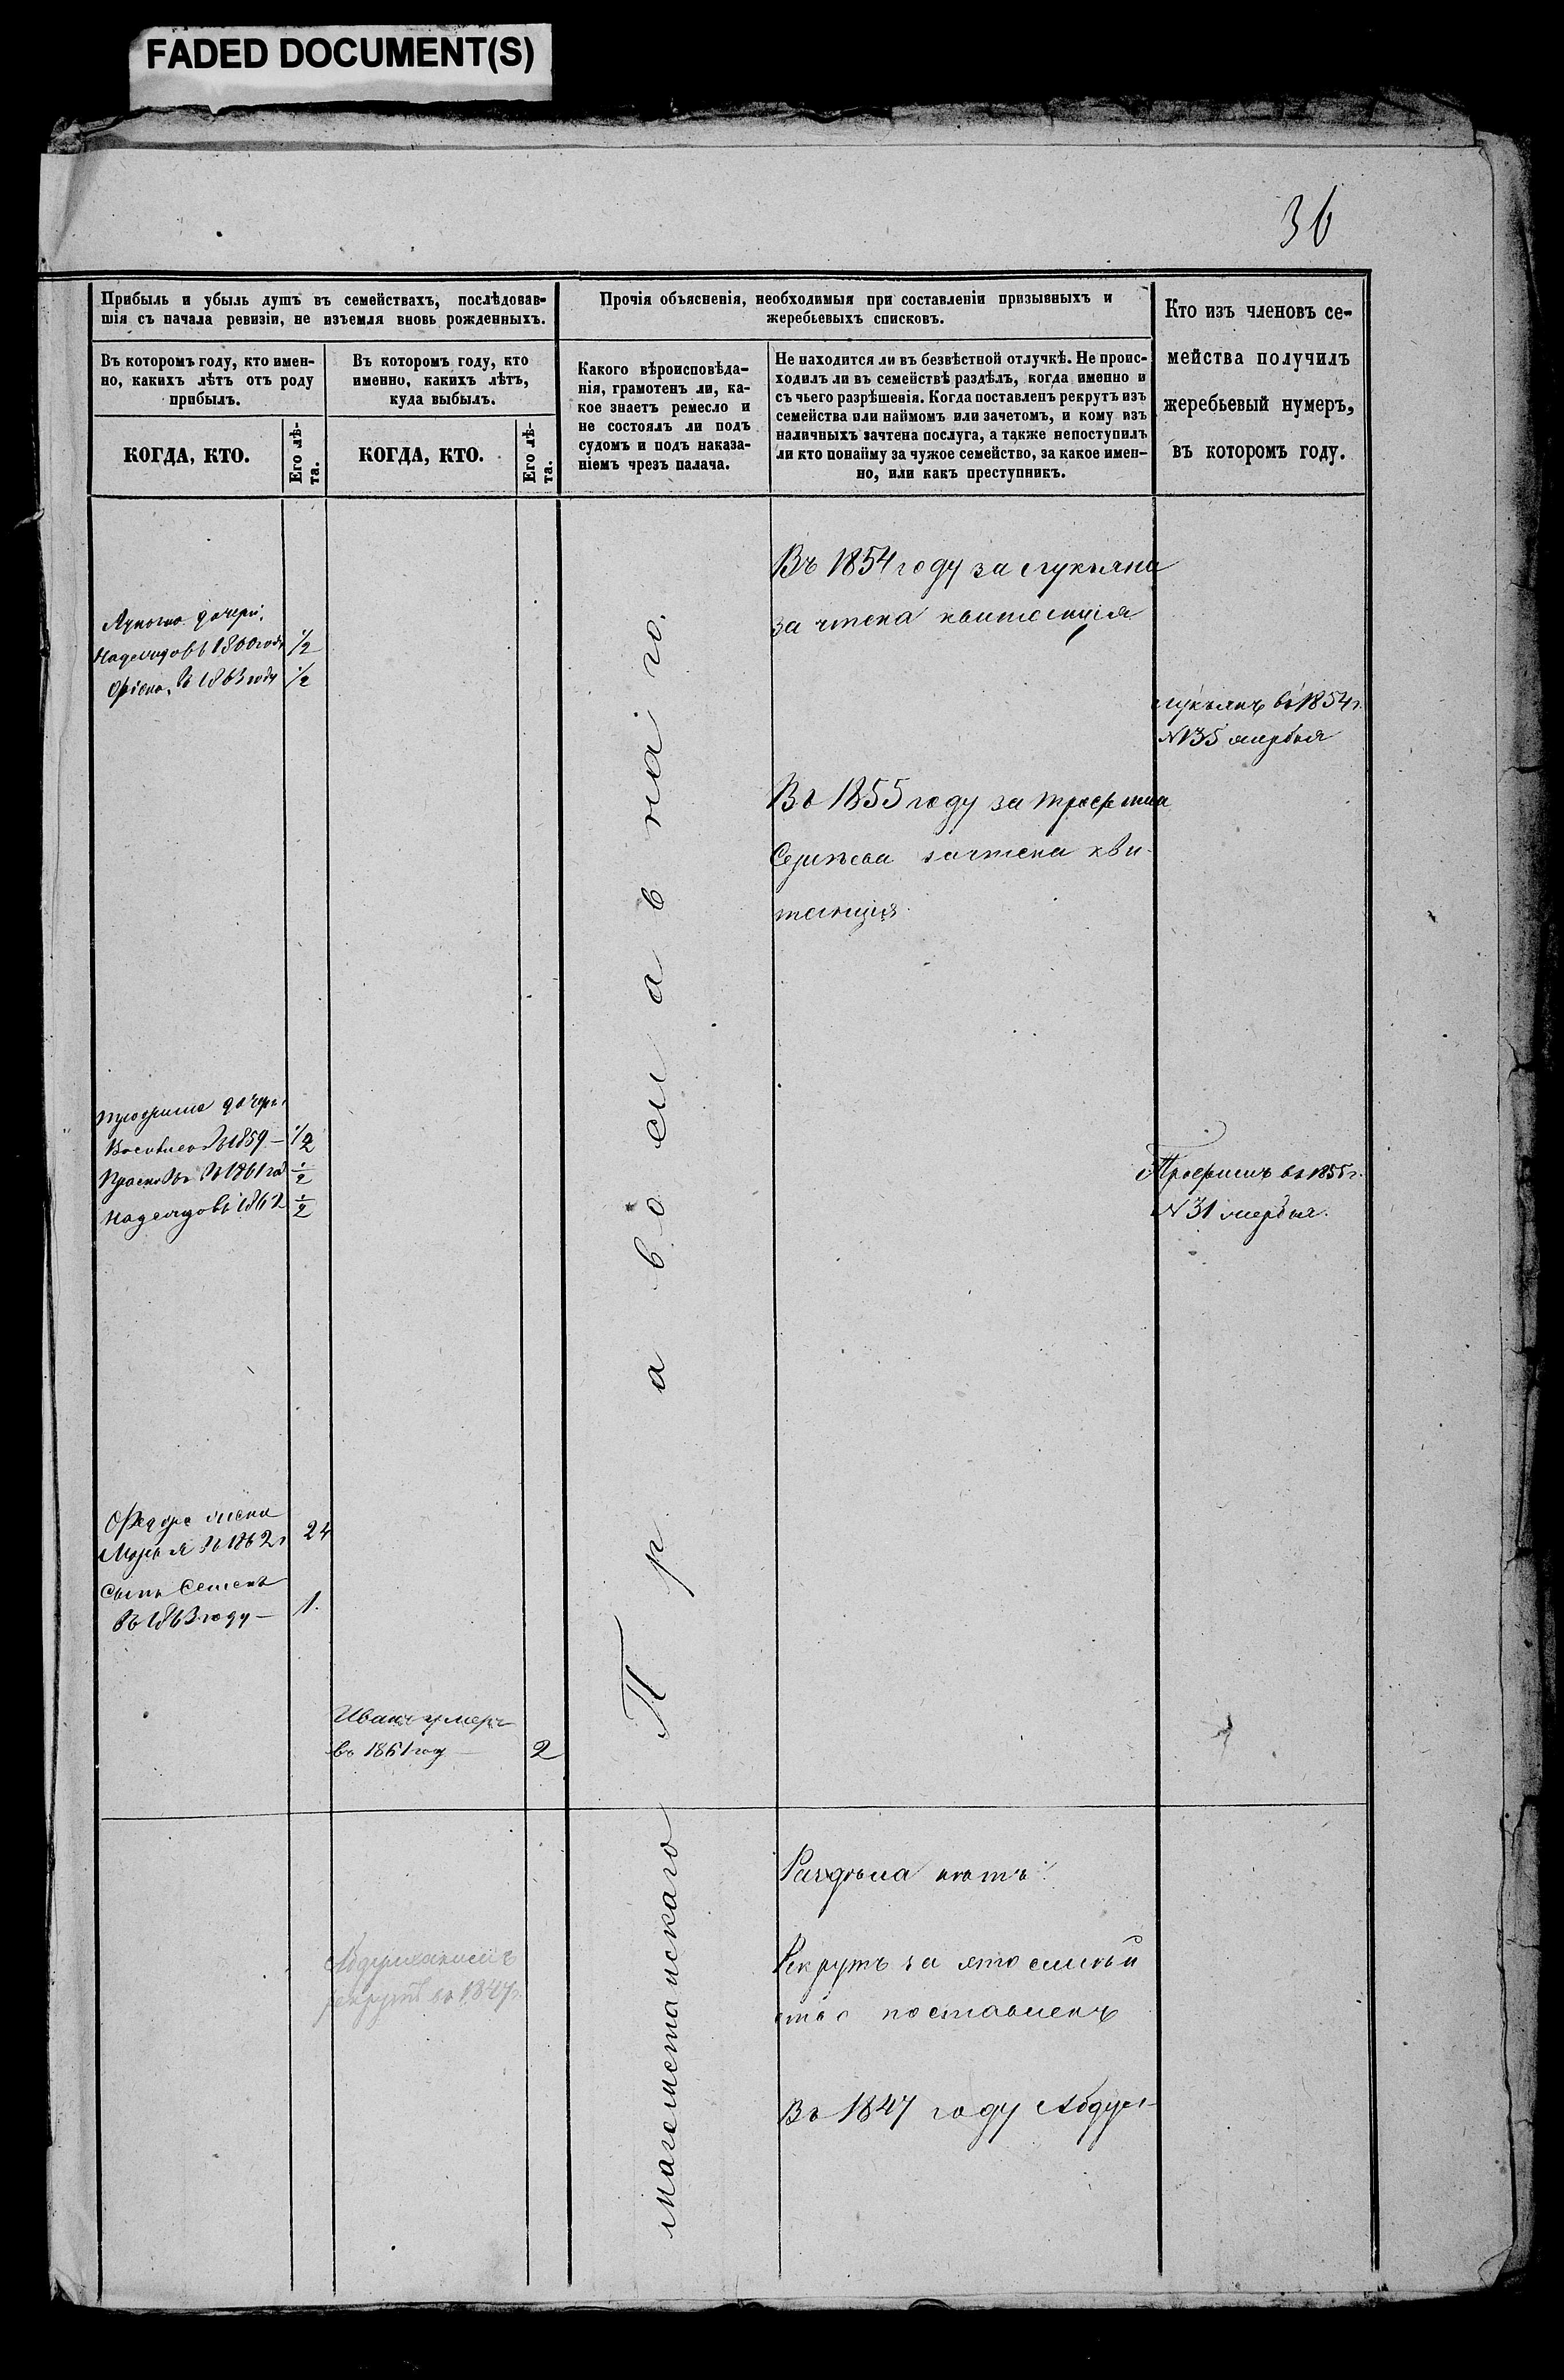 FADED DOCUMENT(S)
36
Прибыль и убыль душъ въ семействахъ, послѣдовав-
шія съ начала ревизіи, не изъемля вновь рожденныхъ.
Въ которомъ году, кто имен-
но, какихъ лѣтъ отъ роду
прибылъ.
КОГДА, КТО.
Его лѣ-
та.
Въ которомъ году, кто
именно, какихъ лѣтъ,
куда выбылъ.
КОГДА, КТО.
Его лѣ-
та.
Прочія объясненія, необходимыя при составленіи призывныхъ и
жеребьевыхъ списковъ.
Какого вѣроисповѣда-
нія, грамотенъ ли, ка-
кое знаетъ ремесло и
не состоялъ ли подъ
судомъ и подъ наказа-
ніемъ чрезъ палача.
Не находится ли въ безвѣстной отлучкѣ. Не проис-
ходилъ ли въ семействѣ раздѣлъ, когда именно и
съ чьего разрѣшенія. Когда поставленъ рекрутъ изъ
семейства или наймомъ или зачетомъ, и кому изъ
наличныхъ зачтена послуга, а также непоступилъ
ли кто понайму за чужое семейство, за какое имен-
но, или какъ преступникъ.
Кто изъ членовъ се-
мейства получилъ
жеребьевый нумеръ,
въ которомъ году.
Въ 1854 году за Лукьяна
зачтена квитенція
дочери:
1860 году 1/2
в 1863 году 1/2
Лукьянъ въ 1854 г.
N 135 жеребья
Въ 1855 году за Трофима
зачтена кви-
тенція
Трофима дочери
в 1859 — 1/2
въ 1861 го 1/2
1862 1/2
Трофимъ въ 1855 г.
N 31 жеребья.
Православнаго.
Федора жена
Марья въ 1862 г 24
Сынъ Семенъ
въ 1863 году — 1.
Иванъ умеръ
въ 1861 году — 2
магометанскаго
Раздѣла нѣтъ.
Рекрутъ за это семей
ство поставленъ
рекрутъ въ 1847 г.
Въ 1847 году Абдул-